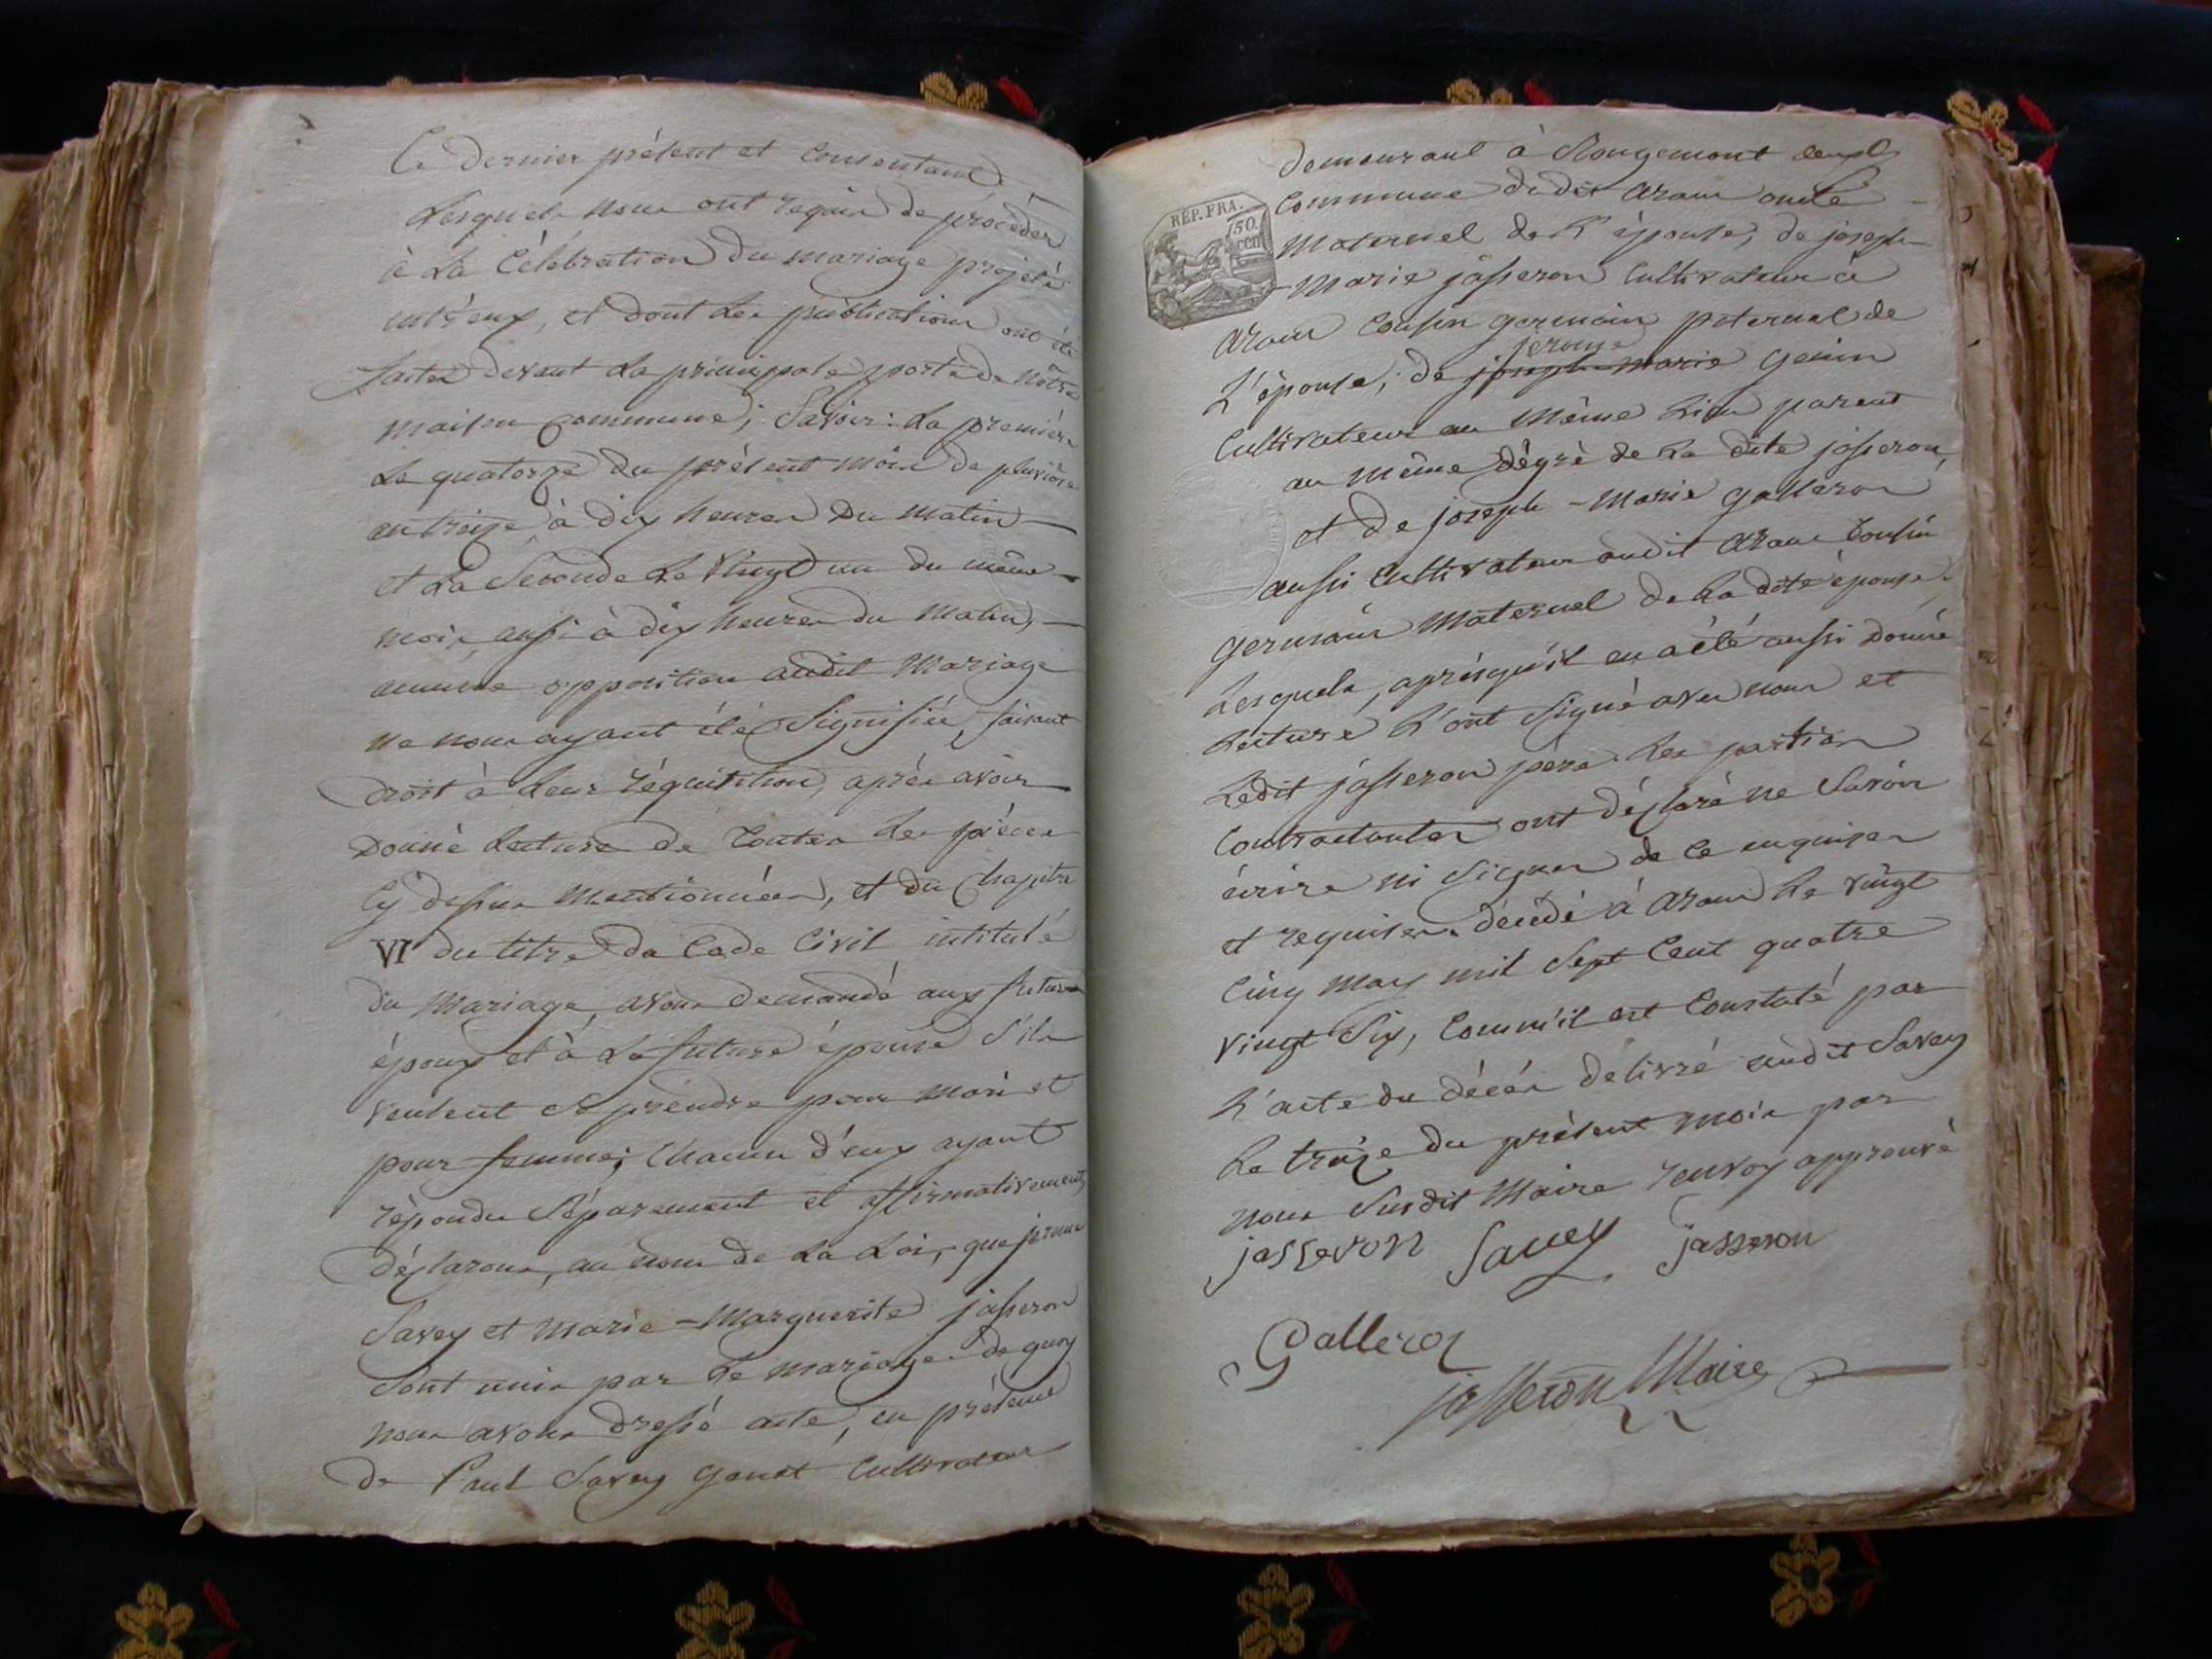 Ce dernier présent et Consentant.
Lesquels nous ont requis de procéder
à la Célébration du mariage projeté
entr'eux, et dont les publications ont été
faites devant la principale porte de nôtre
maison commune; Savoir: la première
le quatorze du présent mois de pluviôse
an treize à dix heures du matin
et la Seconde le vingt un du même
mois, aussi à dix heures du matin,
aucune opposition audit Mariage
ne nous ayant été Signifiée, faisant
droit à leur réquisition, après avoir
Donné lecture de toutes les pièces
Cy dessus mentionnées, et du Chapitre
VI du titre du Code Civil intitulé
du Mariage, avons demandé aux futur
époux et à la future épouse S'ils
veulent se prendre pour mari et
pour femme; Chacun d'eux ayant
répondu Séparement et affirmativement,
déclarons, au nom de la Loi, que jerome
Savey et Marie-Marguerite jasseron
Sont unis par le mariage. de quoy
nous avons dressé acte, en présence
de Paul Savey Cultivateur
demeurant à Rougemont
Commune dudit aranc oncle
maternel de l'épouse, de joseph
-Marie jasseron Cultivateur à
aranc Cousin germain paternel de
jerome
L'épouse; de joseph-marie genin
Cultivateur au même lieu parent
au même dégré de la dite jasseron,
et de joseph-Marie galleron
aussi Cultivateur audit aranc Cousin
germain Maternel de la dite épouse,
Lesquels, aprèsqu'il en a été aussi Donné
lecture l'ont Signé avec nous et
Ledit jasseron père. les parties
Contractantes ont déclaré ne Savoir
écrire ni Signer de ce enquises
et requises. décédé à aranc le vingt
Cinq may mil Sept Cent quatre
vingt Six, Comm'il est Constaté par
L'acte du décés délivré audit Savey
le treize du présent mois par
nous Susdit Maire renvoy approuvé
jasseron Savey jasseron
Galleron
jasseron Maire
REP. FRA.
50
cen